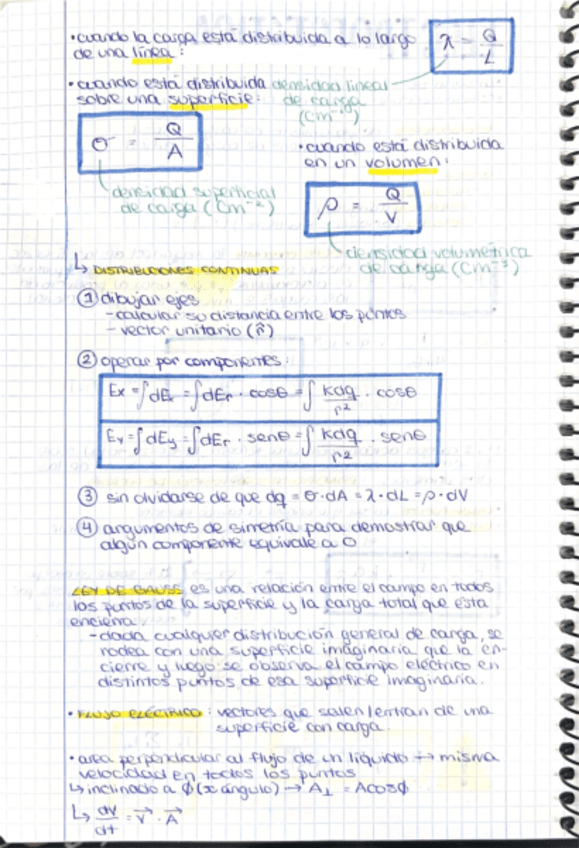 · cuando la carga está distribuida a lo largo
de una línea:
λ = Q/L
· cuando está distribuida
sobre una superficie:
densidad lineal
de carga
(Cm⁻¹)
σ = Q/A
· cuando está distribuida
en un volumen:
densidad superficial
de carga (Cm⁻²)
ρ = Q/V
densidad volumétrica
de carga (Cm⁻³)
↳ DISTRIBUCIONES CONTINUAS
① dibujar ejes
- calcular su distancia entre los puntos
- vector unitario (r̂)
② operar por componentes:
Ex = ∫dEx = ∫dEr · cosθ = ∫ kdq/r² · cosθ
Ey = ∫dEy = ∫dEr · senθ = ∫ kdq/r² · senθ
③ sin olvidarse de que dq = σ·dA = λ·dL = ρ·dV
④ argumentos de simetría para demostrar que
algún componente equivale a 0
LEY DE GAUSS es una relación entre el campo en todos
los puntos de la superficie y la carga total que esta
encierra
- dada cualquier distribución general de carga, se
rodea con una superficie imaginaria que la en-
cierre y luego se observa el campo eléctrico en
distintos puntos de esa superficie imaginaria.
· FLUJO ELÉCTRICO: vectores que salen/entran de una
superficie con carga.
· area perpendicular al flujo de un líquido → misma
velocidad en todos los puntos
↳ inclinado a ϕ (x ángulo) → A⊥ = Acosϕ
↳ dV/dt = v⃗ · A⃗